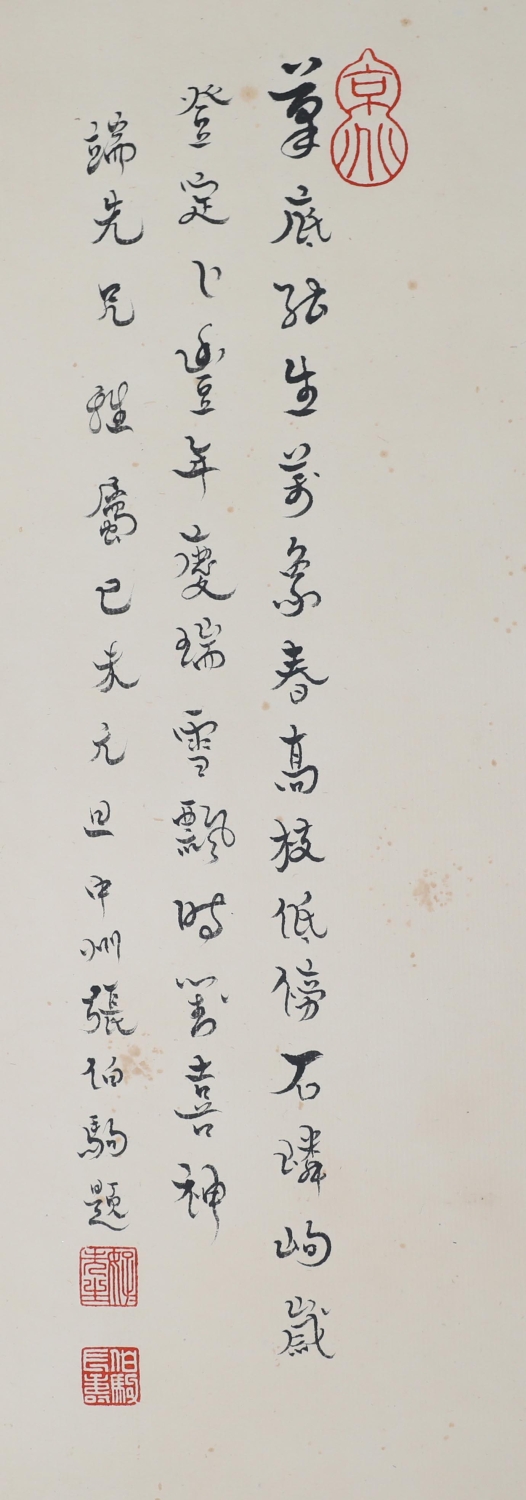 京兆
筆底能生萬象春高枝低傍石嶙峋歲
登定卜豐年慶瑞雪飄時對喜神
端先兄雅屬己未元旦中州張伯駒題
好好先生
伯駒長壽